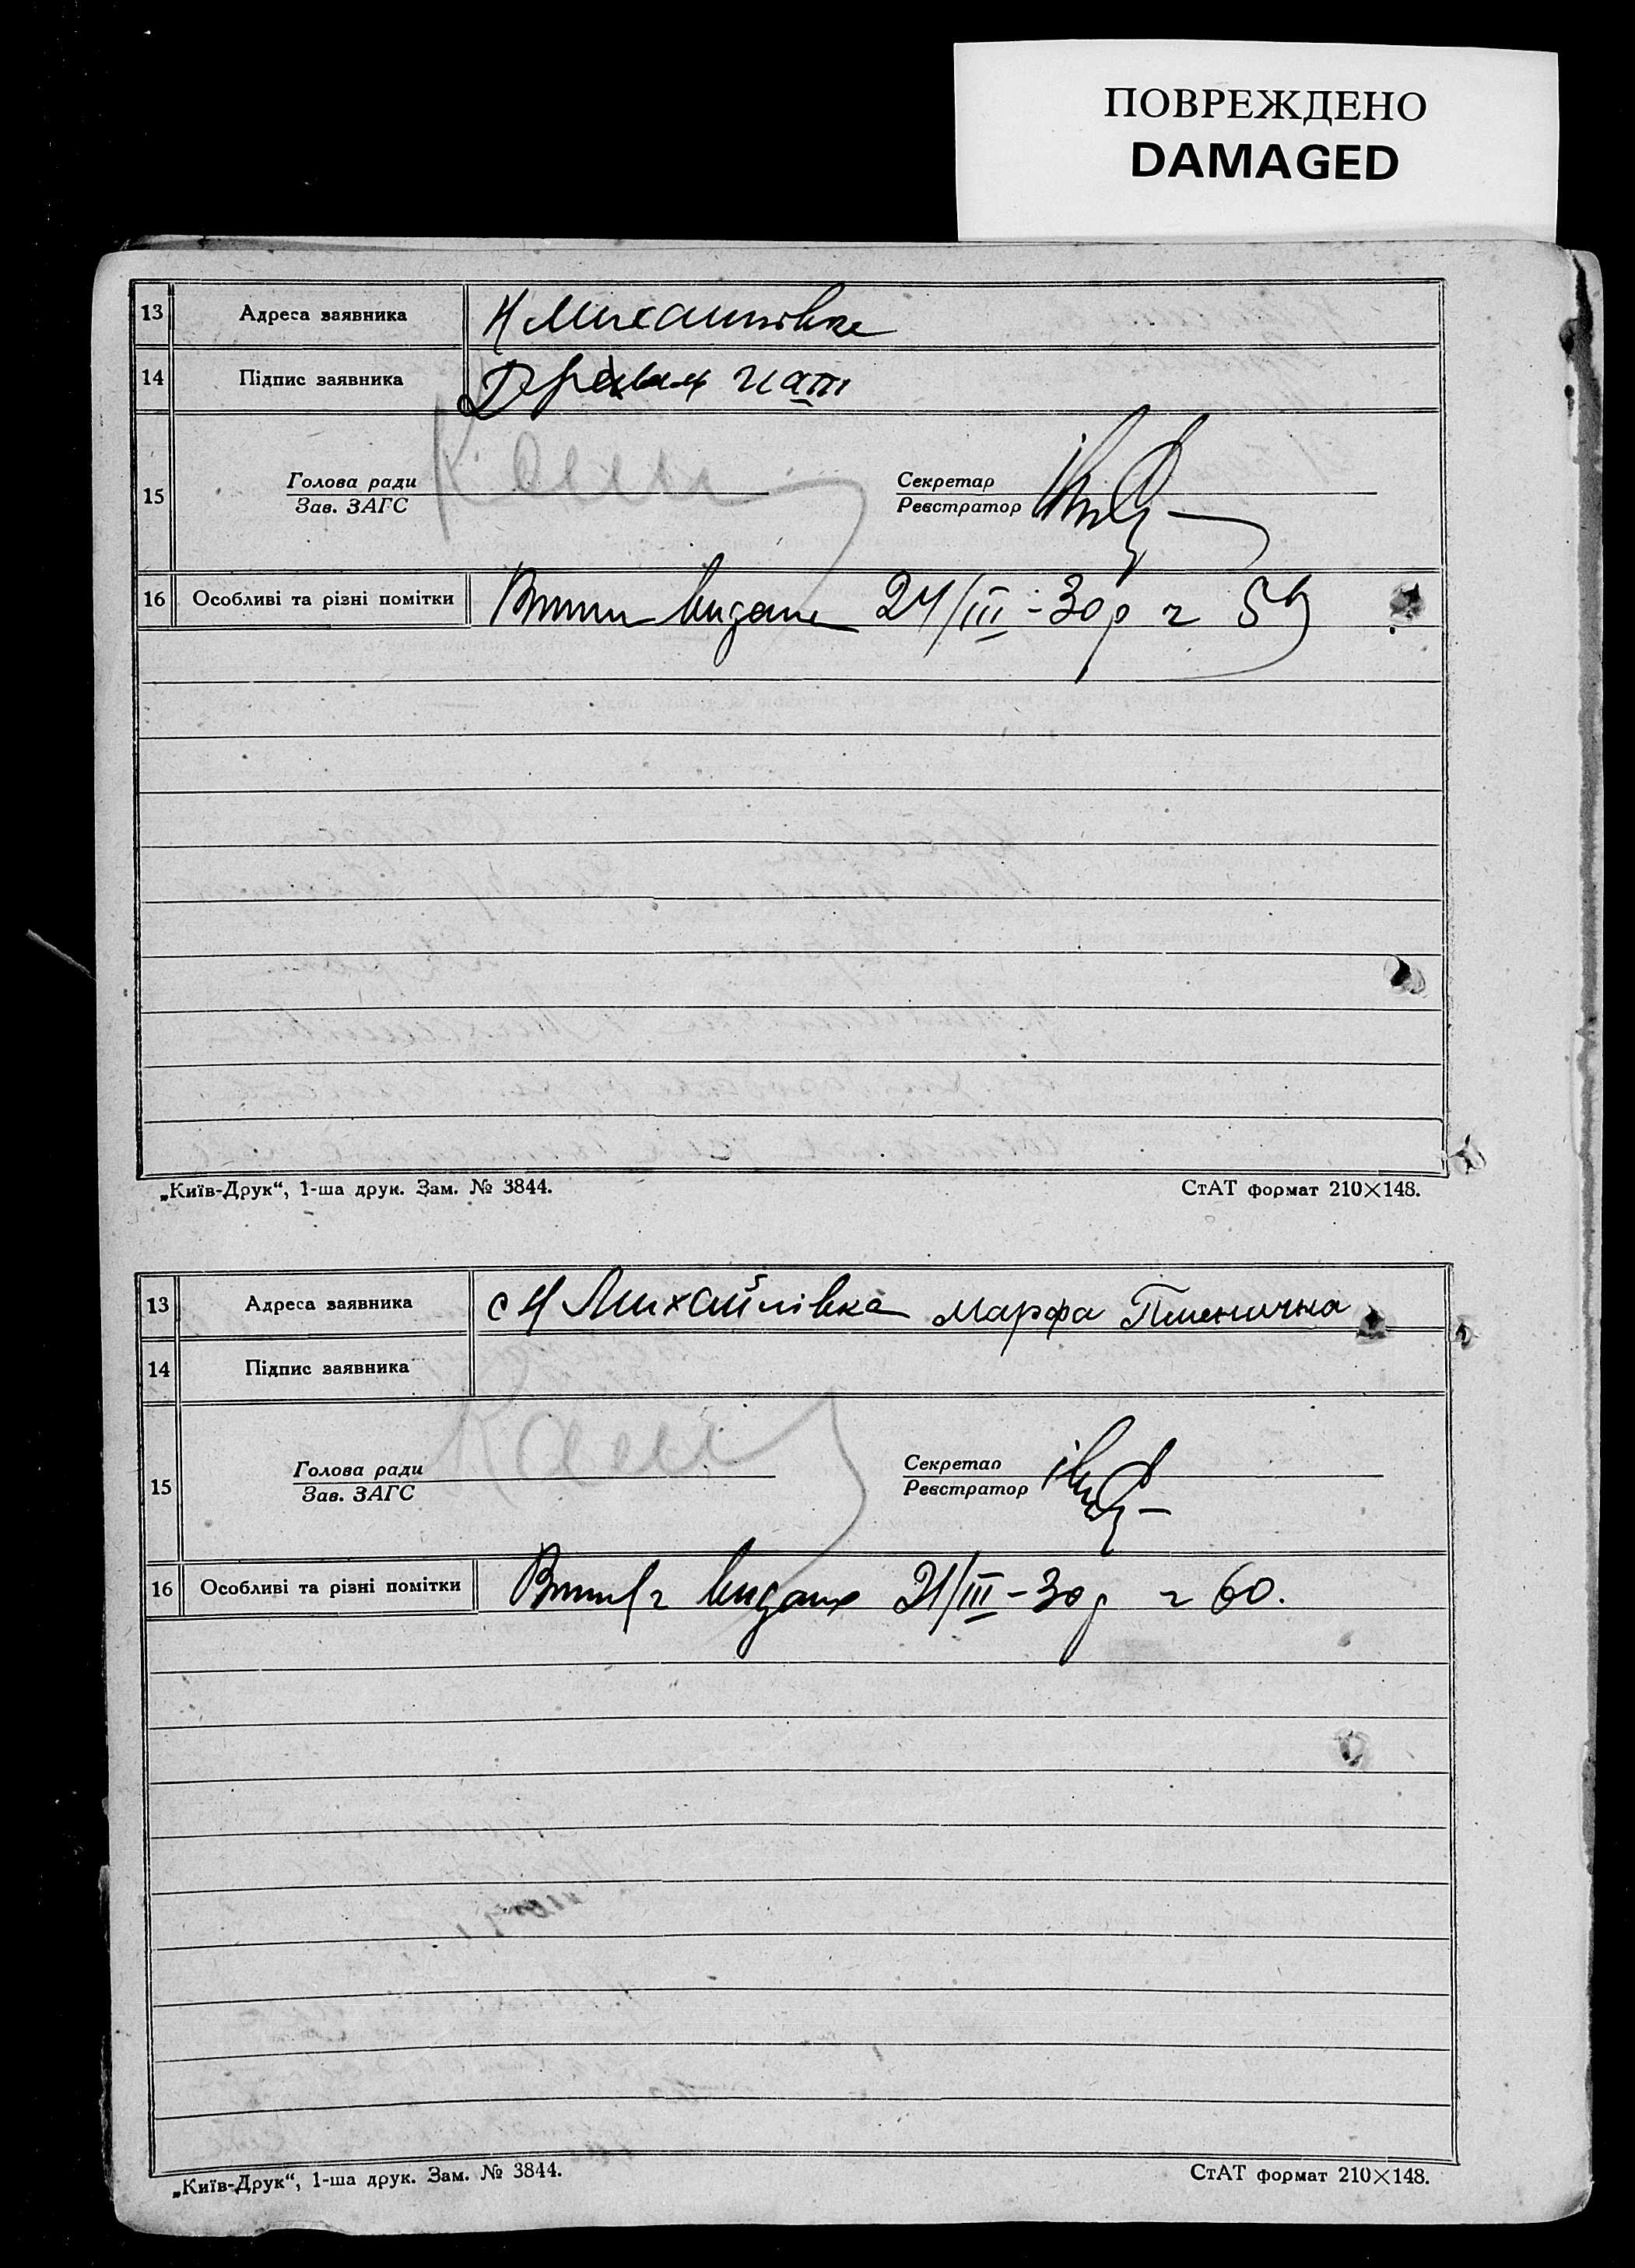 ПОВРЕЖДЕНО
DAMAGED
13 Адреса заявника Н Михайлівка
14 Підпис заявника
15 Голова ради Секретар
Зав. ЗАГС Реєстратор
16 Особливі та різні помітки видано 24/III-30 р ч 59
„Київ-Друк“, 1-ша друк. Зам. № 3844. СтАТ формат 210×148.
13 Адреса заявника с Н Михайлівка Марфа Пшенична
14 Підпис заявника
15 Голова ради Секретар
Зав. ЗАГС Реєстратор
16 Особливі та різні помітки видано 21/III-30 р ч 60.
„Київ-Друк“, 1-ша друк. Зам. № 3844. СтАТ формат 210×148.